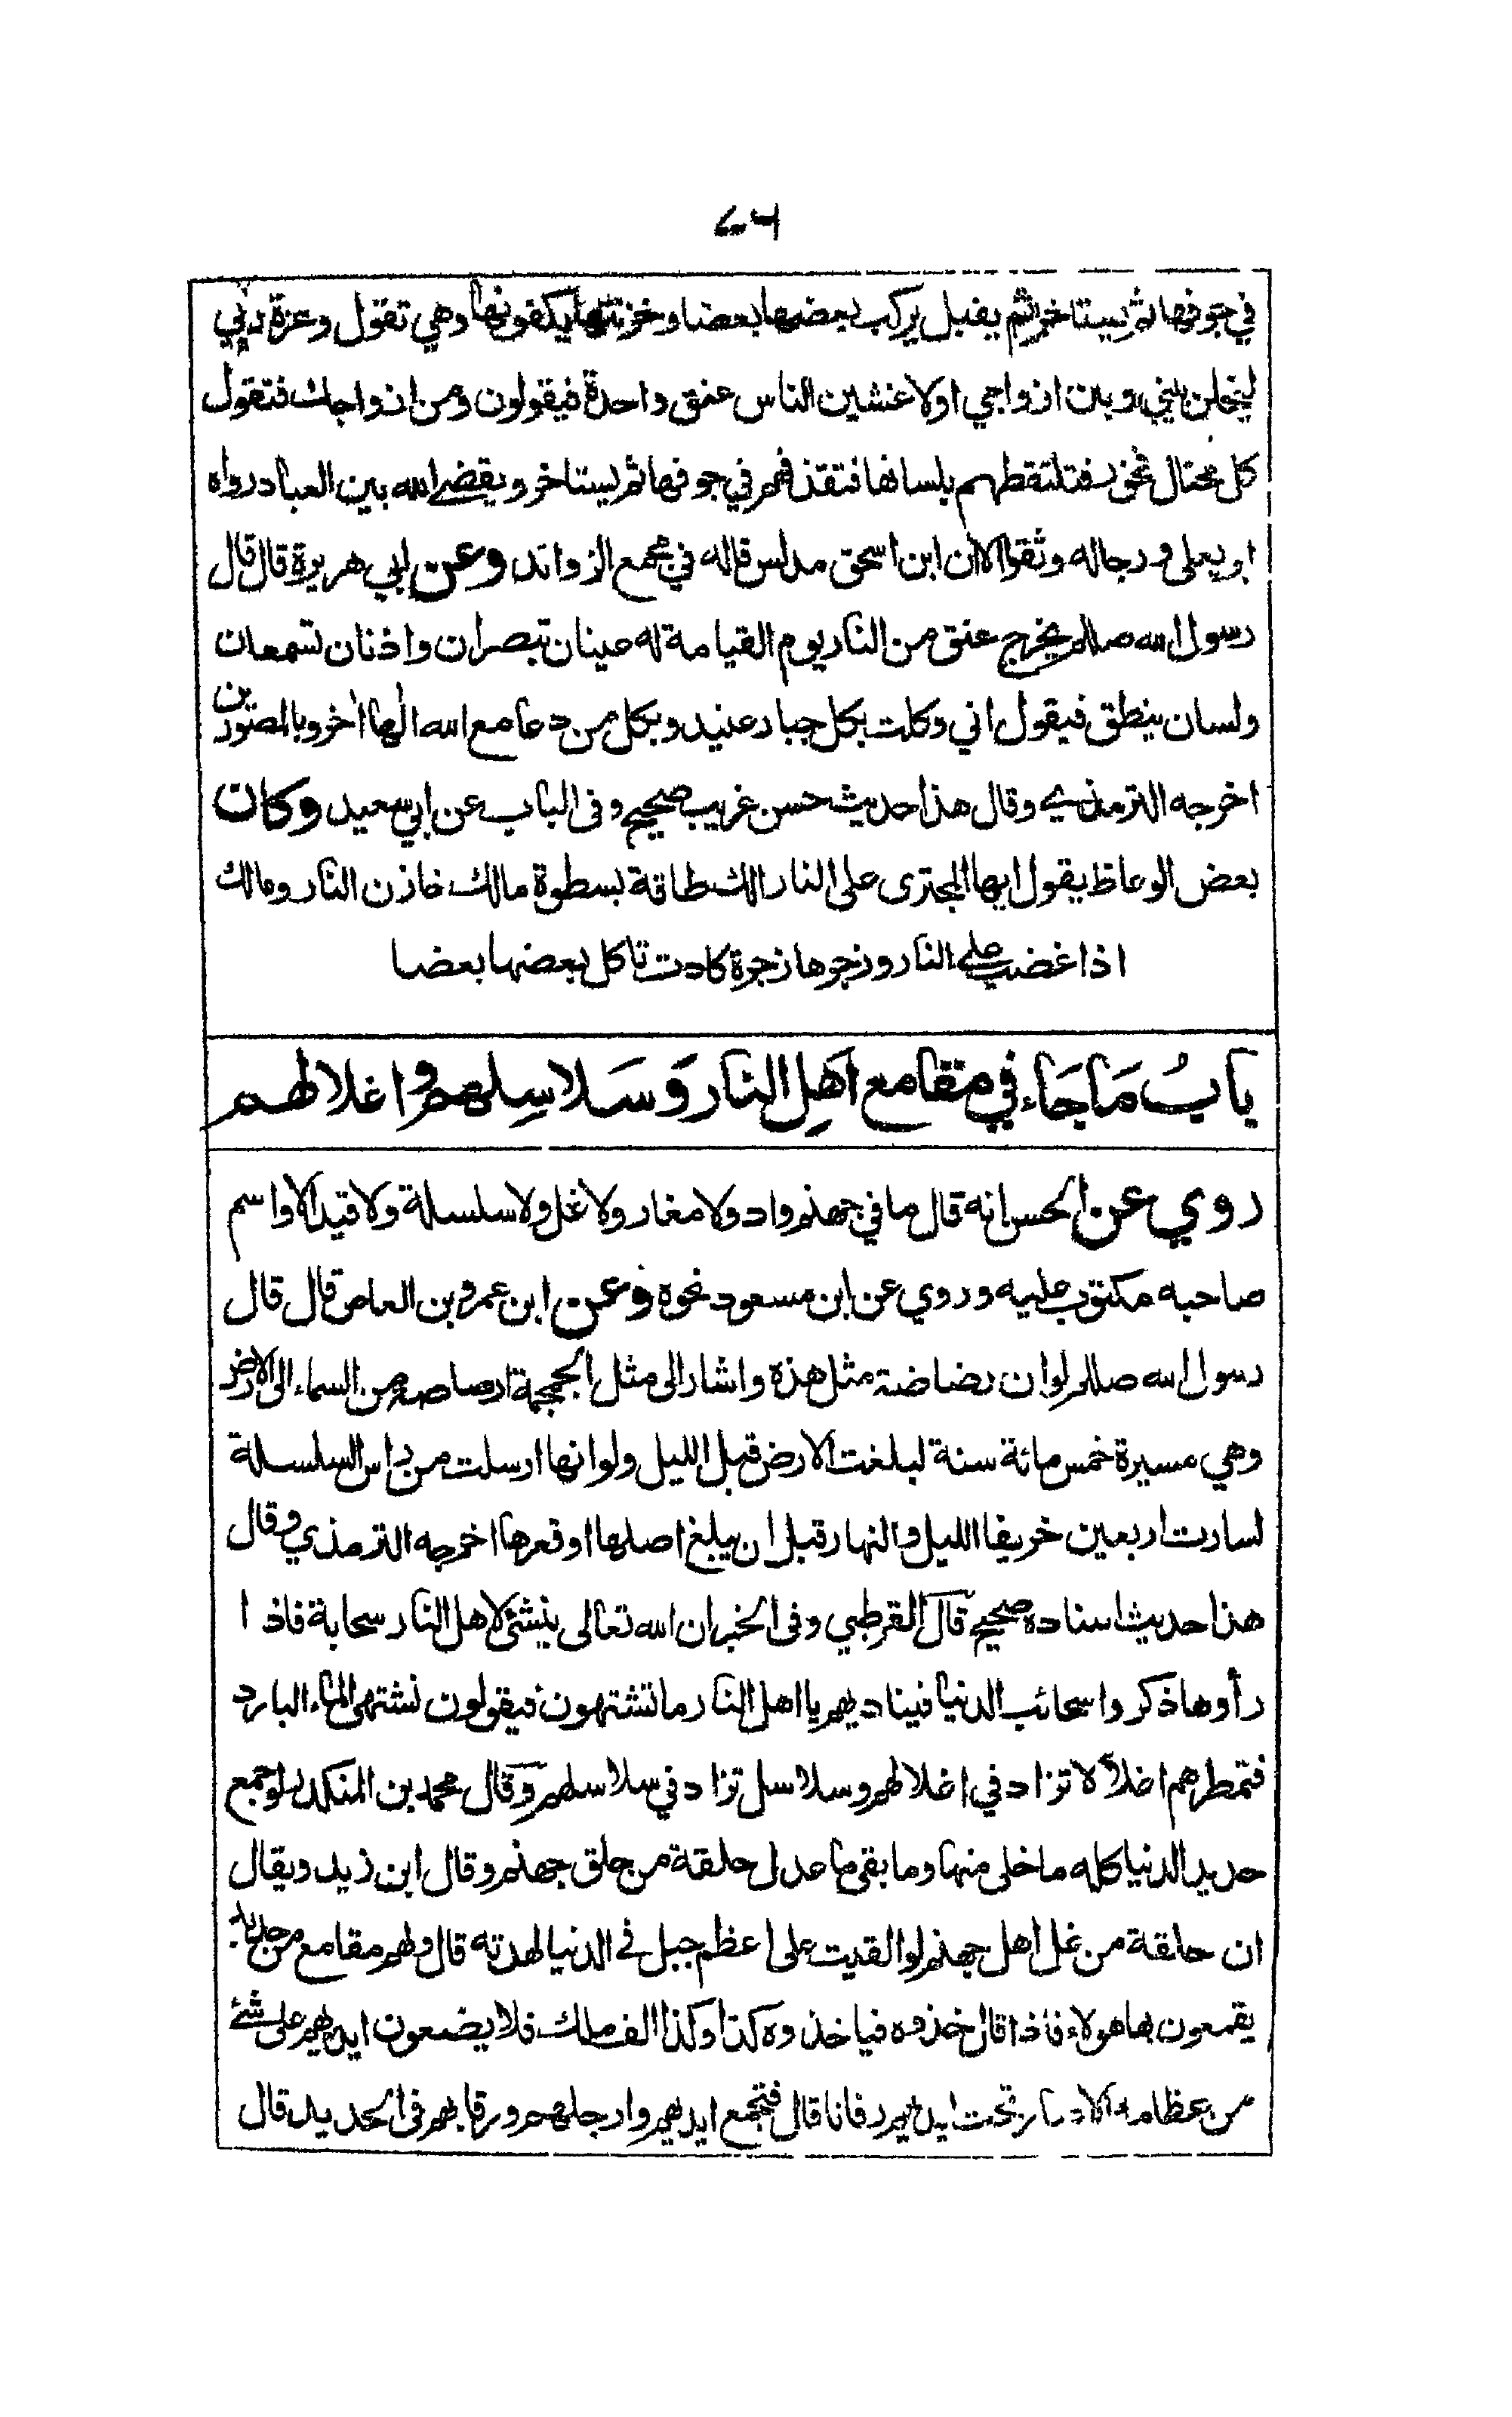 ٤٦
في جوفها ثم يستاخر ثم يقبل يركب بعضها بعضا وخزنتها يكفونها وهي تقول وعزة ربي
ليخلن بيني وبين ازواجي اولاغشين الناس عنق واحدة فيقولون ومن ازواجك فتقول
كل مختال فخور فتلتقطهم بلسانها فتقذفهم في جوفها ثم يستاخر ويقضي الله بين العباد رواه
ابو يعلى ورجاله وثقوا الا ان ابن اسحق مدلس قاله في مجمع الزوائد وعن ابي هريرة قال قال
رسول الله صللم يخرج عنق من النار يوم القيامة له عينان تبصران واذنان تسمعان
ولسان ينطق فيقول اني وكلت بكل جبار عنيد وبكل من دعا مع الله الها اخر وبالمصورين
اخرجه الترمذي وقال هذا حديث حسن غريب صحيح وفى الباب عن ابي سعيد وكان
بعض الوعاظ يقول ايها المجترى على النار الك طاقة بسطوة مالك خازن النار ومالك
اذا غضب على النار وزجرها زجرة كادت تاكل بعضها بعضا
بابُ مَا جَاء في مقامع اهل النار وَسَلاسِلهم واغلالهم
روي عن الحسن انه قال ما في جهنم واد ولا مغار ولا غل ولا سلسلة ولا قيد الا واسم
صاحبه مكتوب عليه وروي عن ابن مسعود نحوه وعن ابن عمرو بن العاص قال قال
رسول الله صللم لو ان رضاضة مثل هذه واشار الى مثل الجمجمة ارصاصه من السماء الى الارض
وهي مسيرة خمس مائة سنة لبلغت الارض قبل الليل ولو انها ارسلت من راس السلسلة
لسارت اربعين خريفا الليل والنهار قبل ان يبلغ اصلها او قعرها اخرجه الترمذي وقال
هذا حديث اسناده صحيح قال القرطبي وفى الخبر ان الله تعالى ينشئ لاهل النار سحابة فاذا
رأوها ذكروا سحائب الدنيا فيناديهم يا اهل النار ما تشتهون فيقولون نشتهى الماء البارد
فتمطرهم اغلالا تزاد في اغلالهم وسلاسل تزاد في سلاسلهم وقال محمد بن المنكدر لو جمع
حديد الدنيا كله ما خلى منها وما بقي ما عدل حلقة من حلق جهنم وقال ابن زيد ويقال
ان حلقة من غل اهل جهنم لو القيت على اعظم جبل في الدنيا لهدته قال ولهم مقامع من حديد
يقمعون بها هولاء فاذا قال خذوه فياخذوه كذا وكذا الف ملك فلا يضعون ايديهم على شئ
من عظامه الا صار تحت ايديهم رفاتا قال فتجمع ايديهم وارجلهم ورقابهم فى الحديد قال